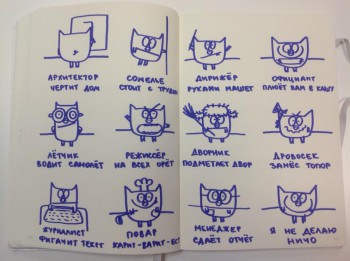 АРХИТЕКТОР
ЧЕРТИТ ДОМ
СОМЕЛЬЕ
СТОИТ С ТРУДОМ
ДИРИЖЁР
РУКАМИ МАШЕТ
ОФИЦИАНТ
ПЛЮЁТ ВАМ В КАШУ
ЛЁТЧИК
ВОДИТ САМОЛЁТ
РЕЖИССЁР
НА ВСЕХ ОРЁТ
ДВОРНИК
ПОДМЕТАЕТ ДВОР
ДРОВОСЕК
ЗАНЁС ТОПОР
ЖУРНАЛИСТ
ФИГАЧИТ ТЕКСТ
ПОВАР
ЖАРИТ-ВАРИТ-ЕСТ
МЕНЕДЖЕР
СДАЁТ ОТЧЁТ
Я НЕ ДЕЛАЮ
НИЧО